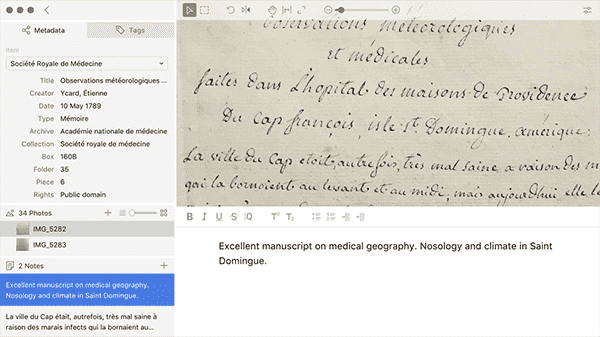 Metadata
Tags
Item
Société Royale de Médecine
Title Observations météorologiques ...
Creator Ycard, Étienne
Date 10 May 1789
Type Mémoire
Archive Académie nationale de médecine
Collection Société royale de médecine
Box 160B
Folder 35
Piece 6
Rights Public domain
34 Photos
IMG_5282
IMG_5283
2 Notes
Excellent manuscript on medical geography.
Nosology and climate in Saint Domingue.
La ville du Cap était, autrefois, très mal saine à
raison des marais infects qui la bornaient au...
Observations météorologiques
et médicales
faites dans L'hopital des maisons de Providence
Du Cap françois, isle St. Domingue, amérique.
La ville du Cap etoit, autrefois, très mal saine, a raison des m
qui la bornoient au levant et au midi, mais aujourdhui elle le
B I U S Q T² T₂
Excellent manuscript on medical geography. Nosology and climate in Saint
Domingue.